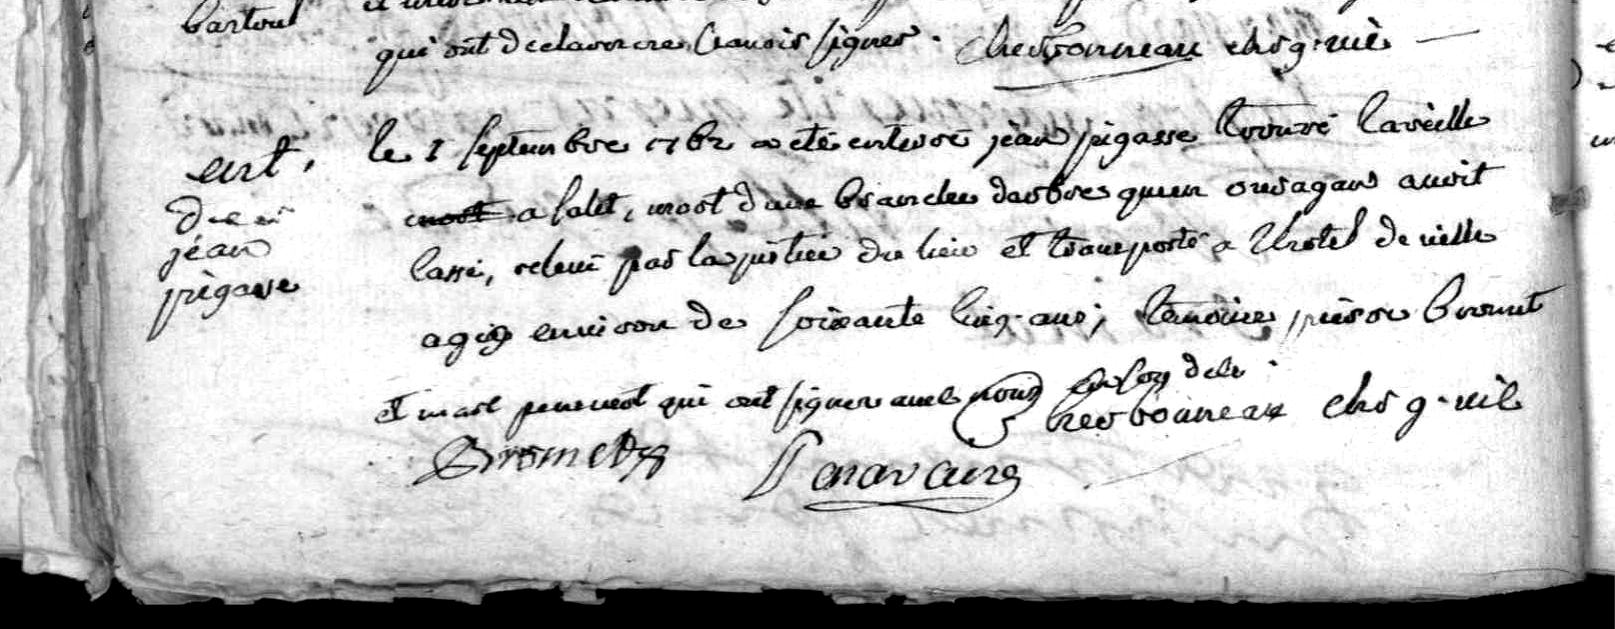 bartoul
qui ont declaré ne scavoir signer. Charbonneau ch.r g. vic
ent.
de
jean
pigasse
le 1 septembre 1762 a eté enterré jean pigasse trouvé la veille
mort a mort d'une branche darbre quun ouragan avoit
cassé, relevé par la justice du lieu et transporté a lhotel de ville
agé environ de soixante cinq ans; temoins pierre bromet
et marc qui ont signer avec nous
Charbonneau ch.r g. vic
Bromet